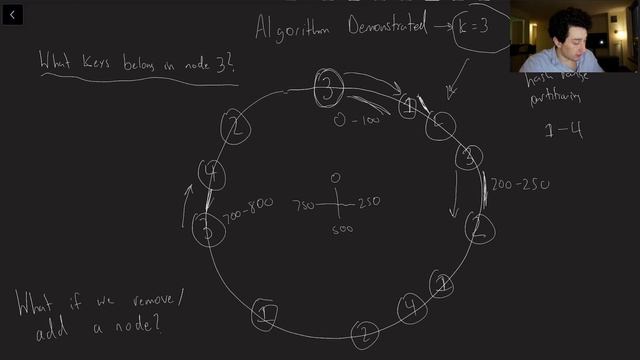 Algorithm Demonstrated → k=3
What keys belong in node 3?
hash range
partitioning
1-4
3
1
2
0-100
2
3
4
0
200-250
750
250
3
700-800
500
2
What if we remove/
add a node?
1
4
1
2